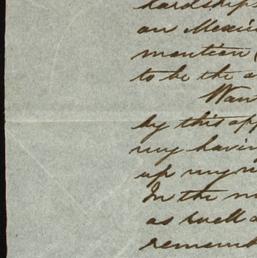 hardships
an Mexic
mention
to be the a
by this app
my having
up my
In the m
as well a
remem